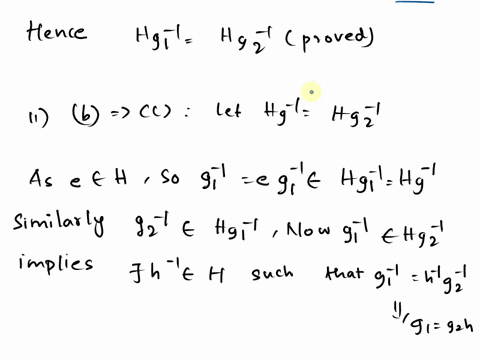 Hence Hg₁⁻¹ = Hg₂⁻¹ (proved)
11) (b) => (c) : let Hg⁻¹ = Hg₂⁻¹
As e ∈ H, so g₁⁻¹ = e g₁⁻¹ ∈ Hg₁⁻¹ = Hg⁻¹
Similarly g₂⁻¹ ∈ Hg₁⁻¹, Now g₁⁻¹ ∈ Hg₂⁻¹
implies ∃ h⁻¹ ∈ H such that g₁⁻¹ = h⁻¹g₂⁻¹
g₁ = g₂h